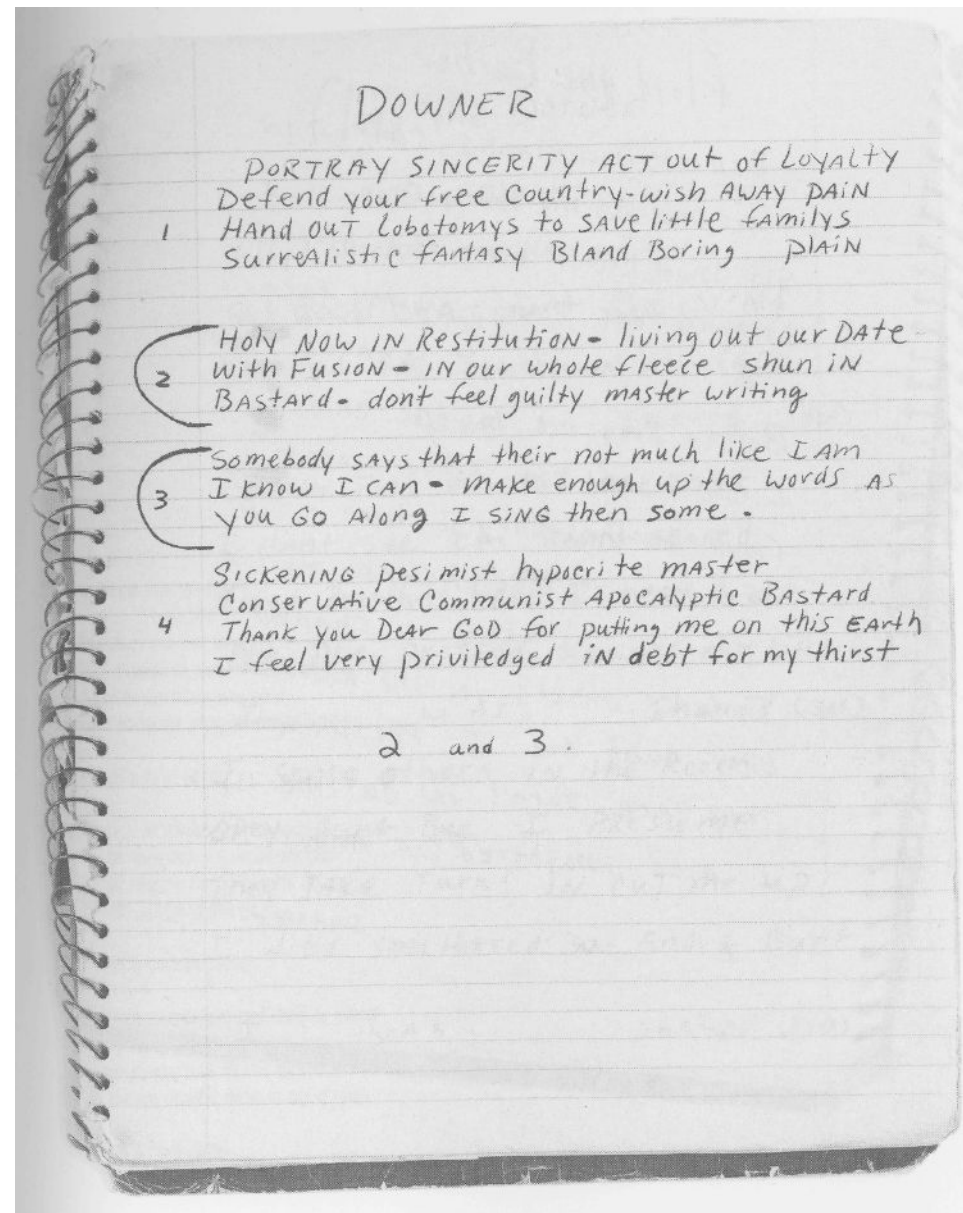 DOWNER
PORTRAY SINCERITY ACT out of LOYALTY
Defend your free Country-wish AWAY PAIN
1 HAnd OUT Lobotomys to SAVE little fAmilys
SurreAlistic fANtASy BlAnd Boring PlAiN
Holy NOW IN Restitution - living out our DAte
2 With FUSION - IN our whole fleece shun iN
BAStArd - don't feel guilty mASter writing
Somebody SAYS thAt their not much like I Am
3 I know I CAN - MAKE enough up the words AS
you GO Along I SiNG then some.
SICKENING pesimist hypocrite mAster
ConservAtive Communist ApocAlyptic BAStArd
4 ThAnk you DeAr GOD for putting me on this EArth
I feel very priviledged iN debt for my thirst
2 and 3.